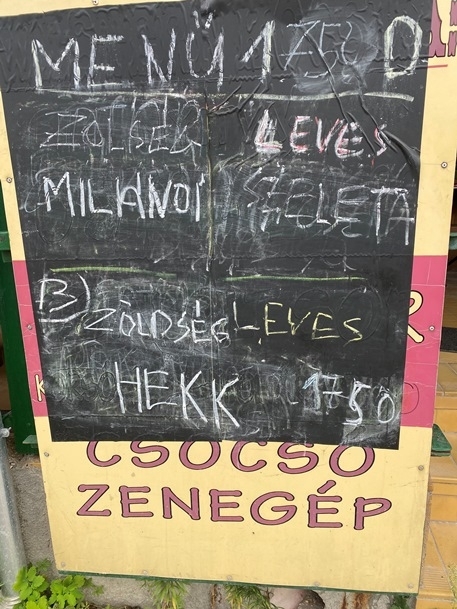 MENÜ 1750
ZÖLSÉG LEVES
MILÁNOI SZELETA
B) ZÖLDSÉG LEVES
HEKK 1750
CSOCSÓ
ZENEGÉP